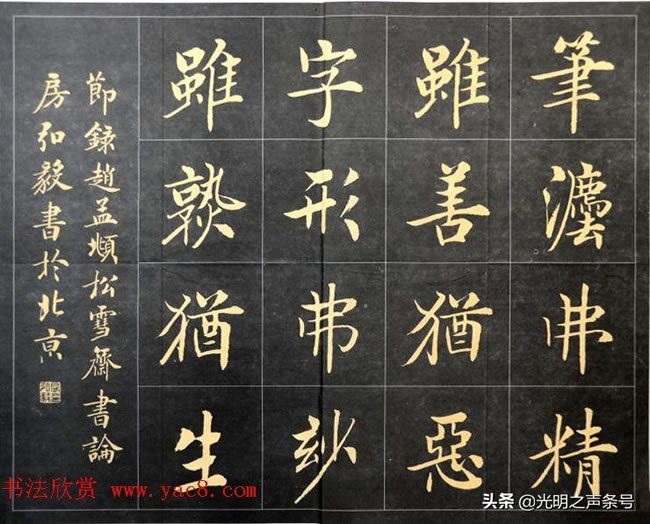 筆灋弗精
雖善猶惡
字形弗妙
雖熟猶生
節錄趙孟頫松雪齋書論
房弘毅書於北京
书法欣赏 www.yac8.com
头条 @光明之声条号